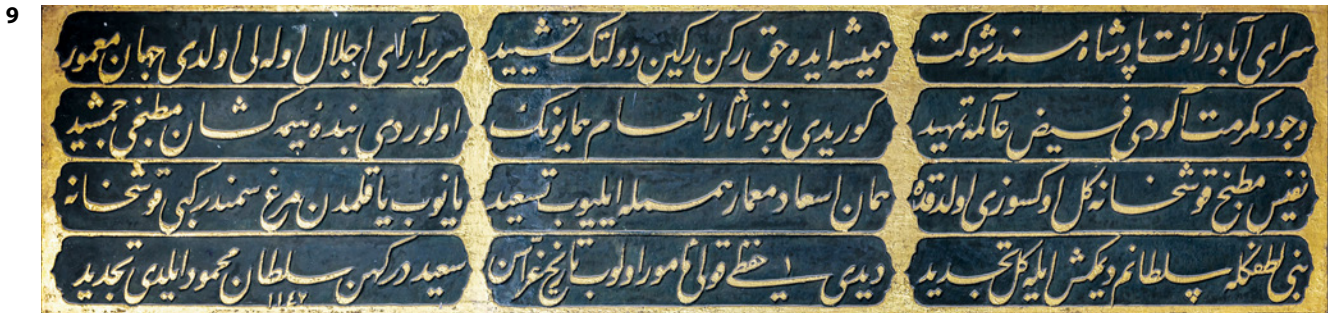 9
سرای آباد رأفت پادشاه مسند شوکت همیشه ایده حق رکن رکین دولتک تشیید سریر آرای اجلال اوله لی اولدی جهان معمور
وجود مکرمت آلودی فیض عالمه تمهید کوریدی نوبنو آثار انعام همایونک اولوردی بنده هیمه کشان مطبخی جمشید
نفیس مطبخ قوشخانه کل اوکسوزی اولدقده همان اسعاد معمار همله ایلیوب تسعید یانوب یاقلمدن مرغ سمندر کبی قوشخانه
بنی لطفکله سلطانم دیکمش ایله کل تجدید دیدی حفظی قولی مأمور اولوب تاریخ غراسن سعید در کهن سلطان محمود ایلدی تجدید
١١٤٢